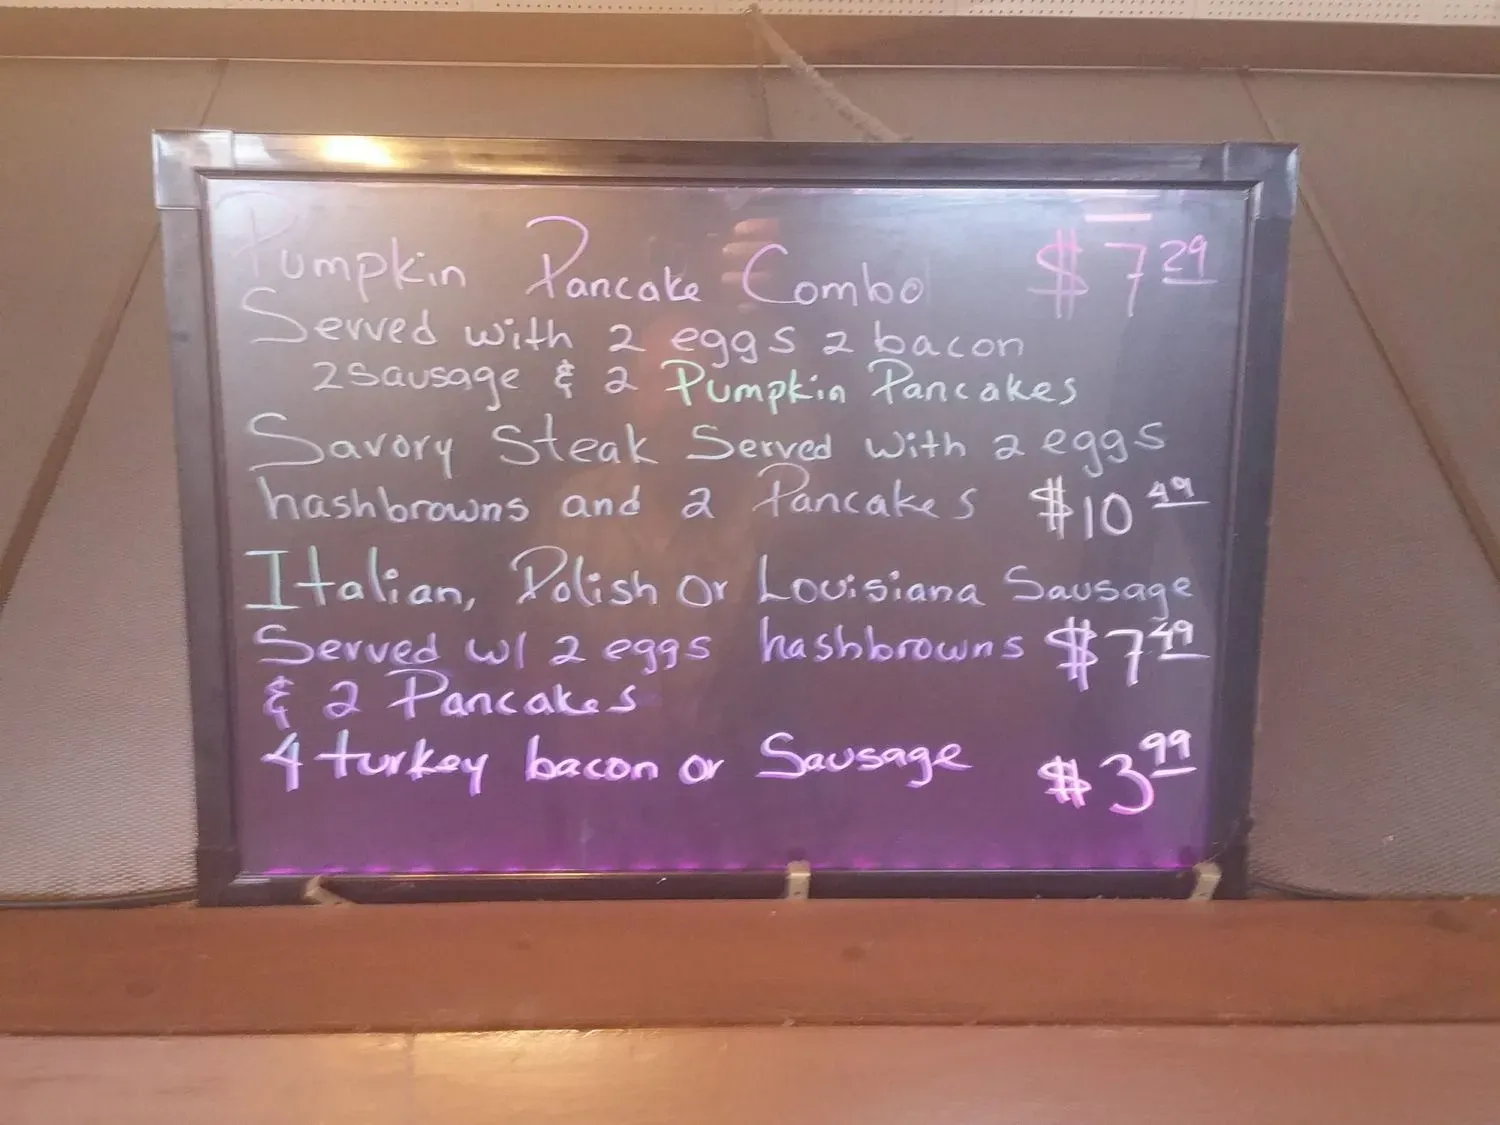 Pumpkin Pancake Combo $7 29
Served with 2 eggs 2 bacon
2 Sausage & 2 Pumpkin Pancakes
Savory Steak Served with 2 eggs
hashbrowns and 2 Pancakes $10 49
Italian, Polish or Louisiana Sausage
Served w/ 2 eggs hashbrowns $7 49
& 2 Pancakes
4 turkey bacon or Sausage $3 99